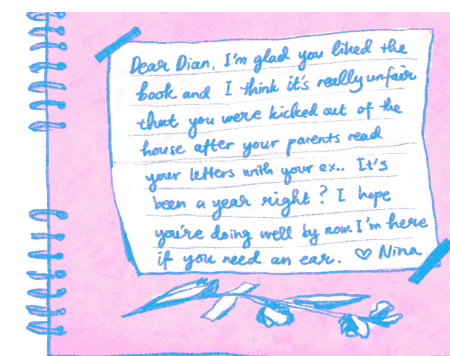 Dear Dian, I'm glad you liked the
book and I think it's really unfair
that you were kicked out of the
house after your parents read
your letters with your ex.. It's
been a year right? I hope
you're doing well by now. I'm here
if you need an ear. ♡ Nina